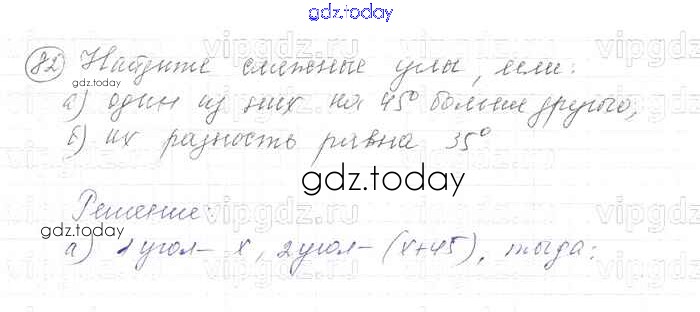 gdz.today
82) Найдите смежные углы, если:
gdz.today
а) один из них на 45° больше другого;
б) их разность равна 35°
gdz.today
Решение:
а) 1 угол – x, 2 угол – (x+45), тогда:
gdz.today